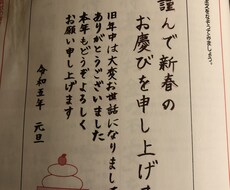 謹んで新春の
お慶びを申し上げま
旧年中は大変お世話になりまして
ありがとうございました
本年もどうぞよろしく
お願い申し上げます
令和五年 元旦